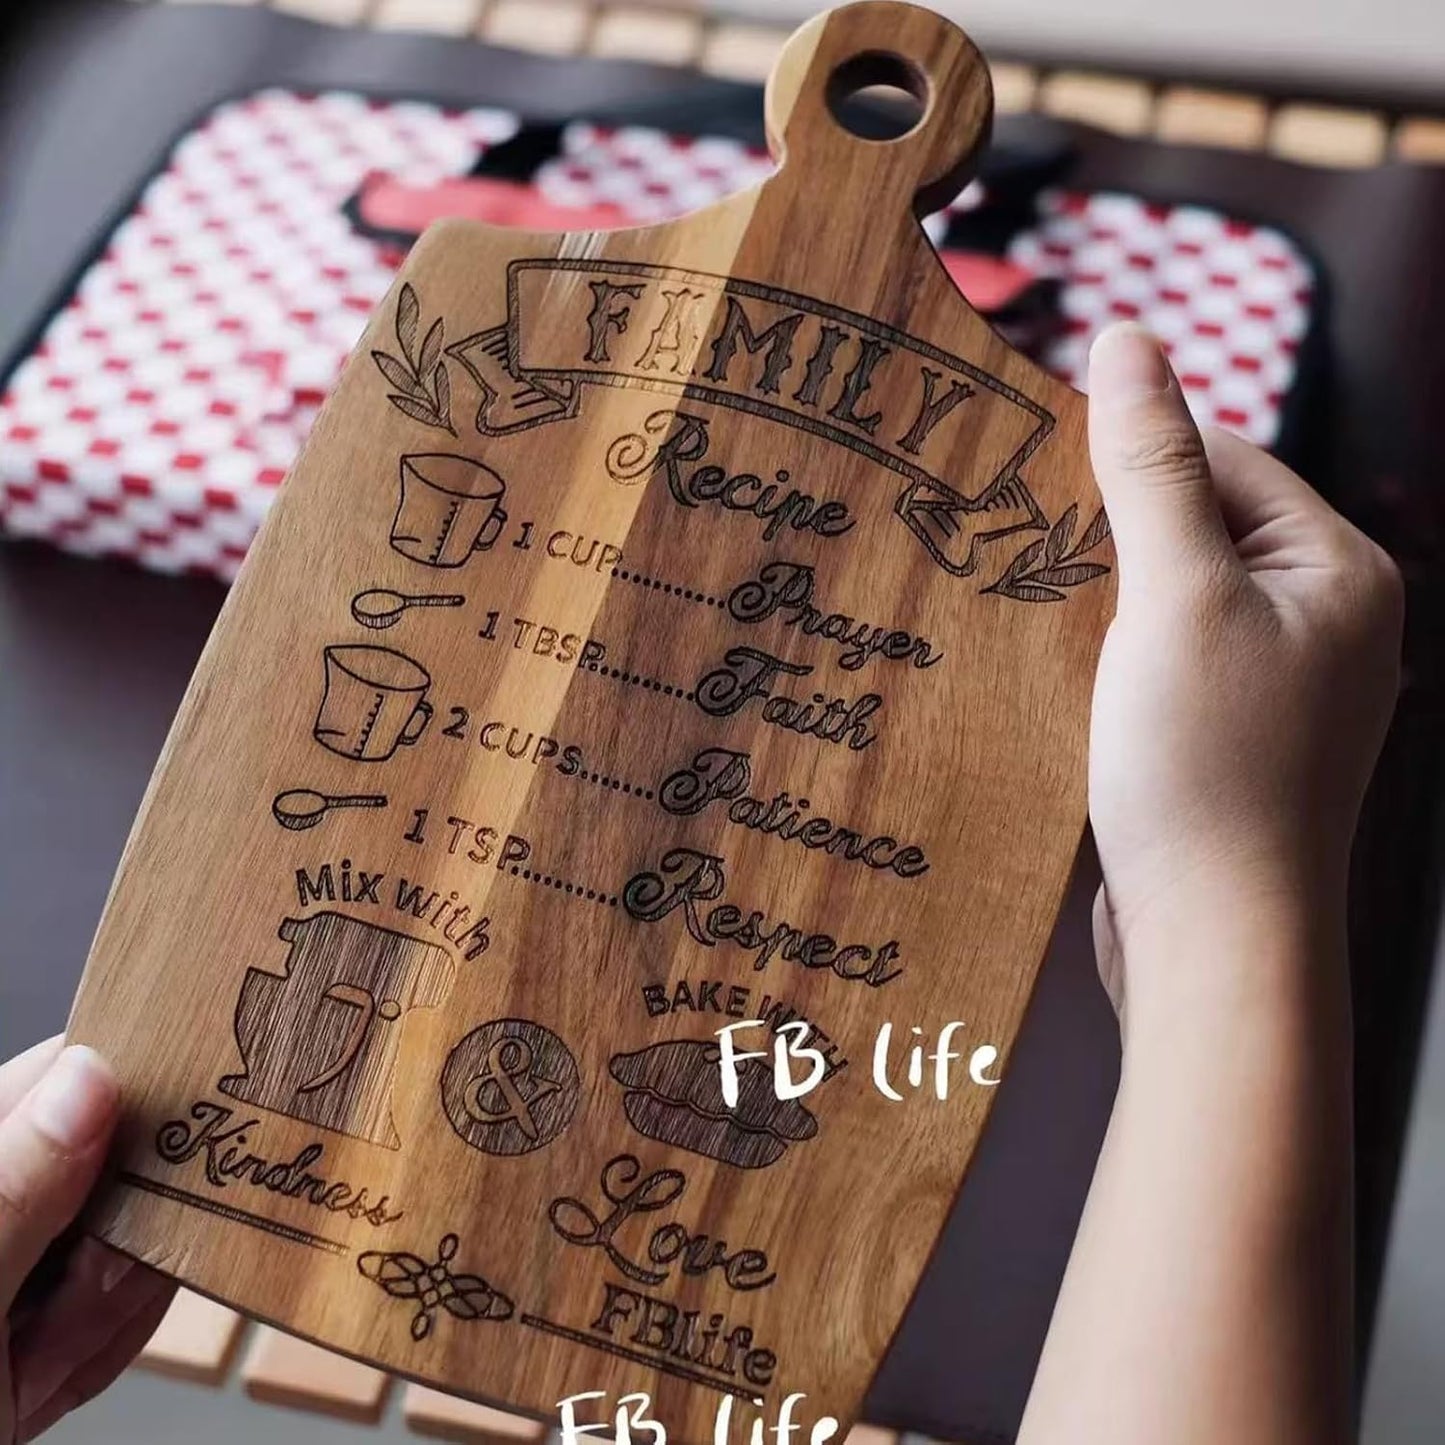 FAMILY
Recipe
1 CUP..........Prayer
1 TBSP..........Faith
2 CUPS........Patience
1 TSP..........Respect
Mix with
Kindness
&
BAKE WITH
Love
FBlife
FB life
FB life